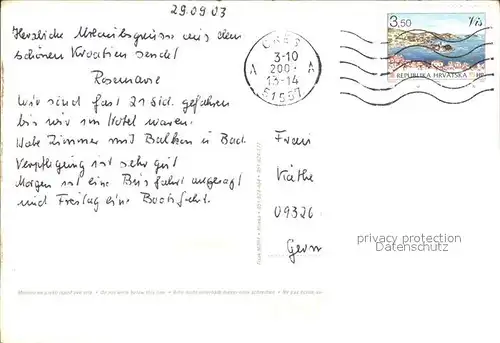 29.09.03
Herzliche Urlaubsgrüsse aus dem
schönen Kroatien sendet
Rosemarie
Wir sind fast 21 Std. gefahren
bis wir im Hotel waren.
Habe Zimmer mit Balkon u. Bad.
Verpflegung ist sehr gut
Morgen ist eine Busfahrt angesagt
und Freitag eine Bootsfahrt.
CRES
3-10
200
13-14
A A
51557
3,50
REPUBLIKA HRVATSKA HP
Frau
Käthe
09326
Gern
privacy protection
Datenschutz